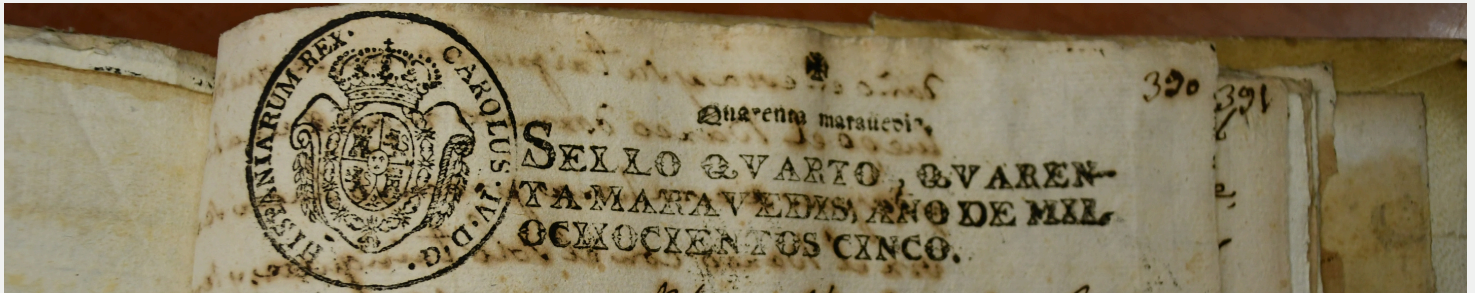 CAROLUS · IV · D · G · HISPANIARUM REX ·
390
391
Quarenta marauedis.
SELLO QVARTO, QVAREN-
TA MARAVEDIS, AÑO DE MIL
OCHOCIENTOS CINCO.